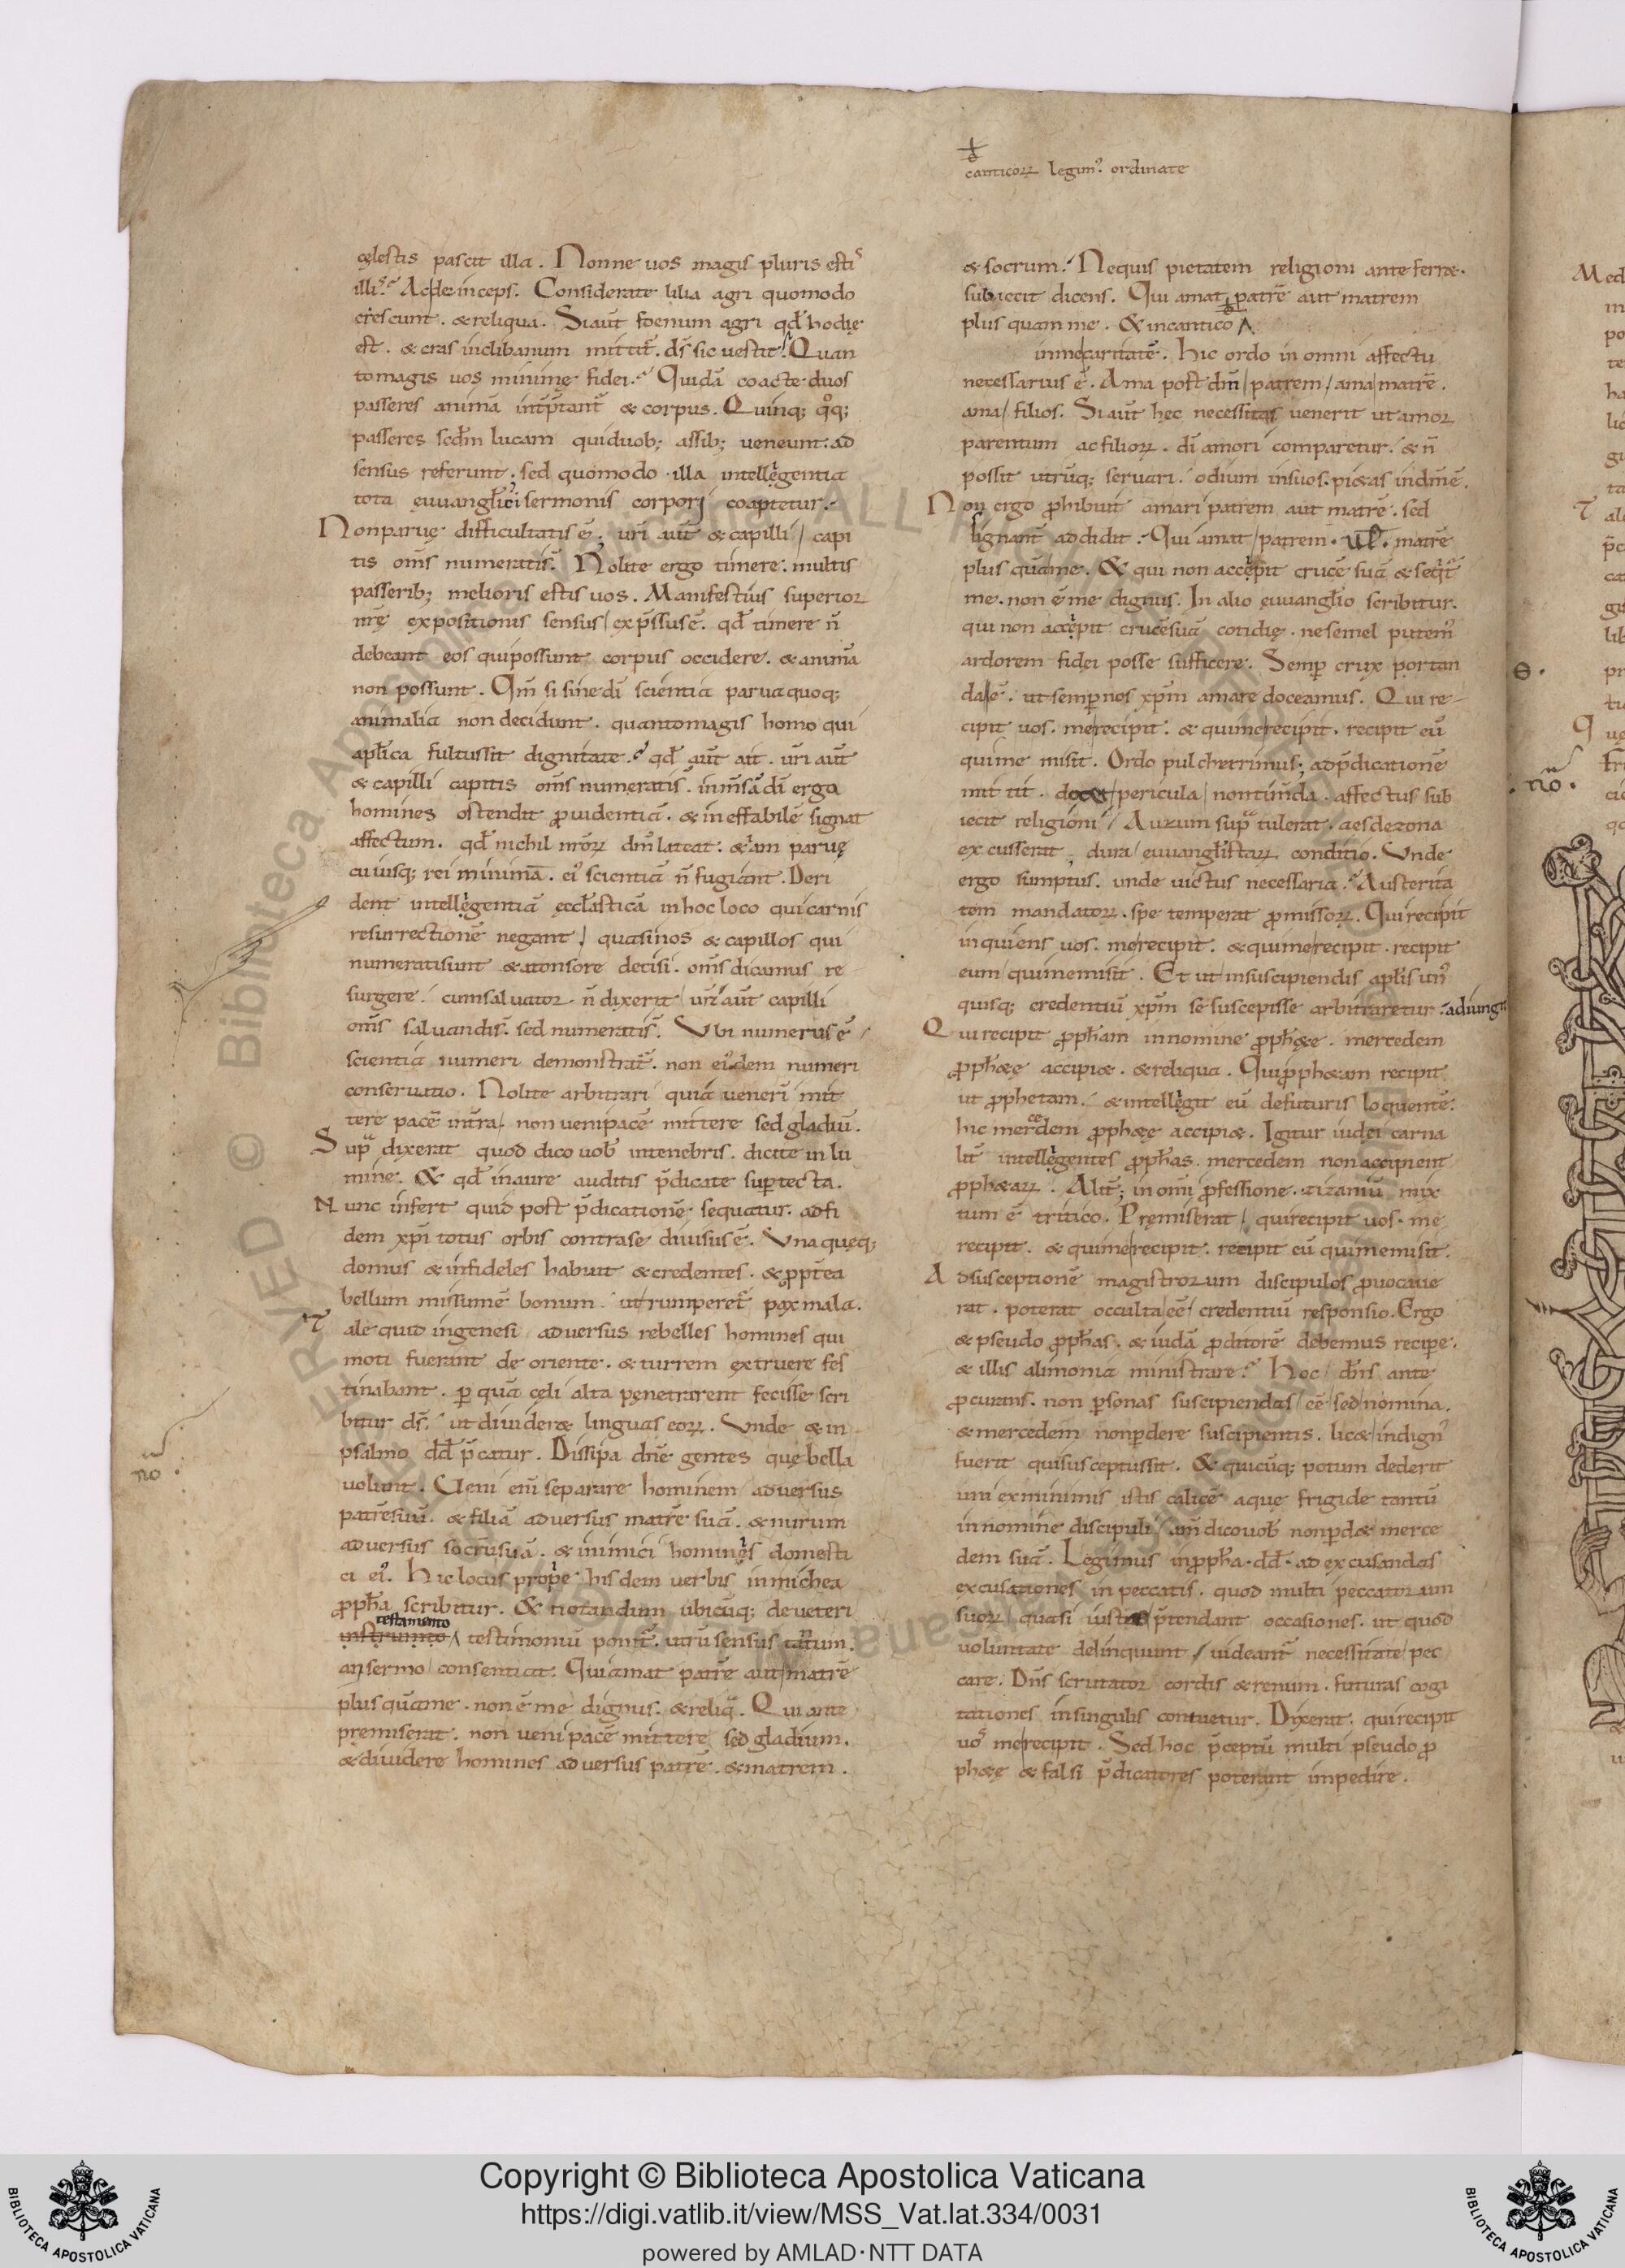 canticorꝝ legim᷒ ordinate
cęlestis pascit illa. Nonne uos magis pluris esti
illis? Ac deinceps. Considerate lilia agri quomodo
crescunt. & reliqua. Si aut̄ foenum agri qd̄ hodie
est. & cras in clibanum mittit̄. ds̄ sic uestit. Quan
to magis uos minimę fidei. Quidā coacte duos
passeres animā int̄p̄tant̄ & corpus. Quinq; qq;
passeres scd̄m lucam qui duob; assib; ueneunt. ad
sensus referunt; sed quomodo illa intellegentia
tota euuanglici sermonis corpori coaptetur.
Non paruę difficultatis ē; ur̄i aut̄ & capilli capi
tis om̄s numerati s̄. Nolite ergo timere. multis
passerib; melioris estis uos. Manifestius superior
nr̄ę expositionis sensus exp̄ssus ē. qd̄ timere n̄
debeant eos qui possunt corpus occidere. & animā
non possunt. Qm̄ si sine dī scientia parua quoq;
animalia non decidunt. quanto magis homo qui
apl̄ica fultus sit dignitate. qd̄ aut̄ ait. ur̄i aut̄
& capilli capitis om̄s numerati s̄. inm̄sā dī erga
homines ostendit prouidentiā. & ineffabilē signat
affectum. qd̄ nichil nr̄orꝝ dm̄ lateat. & iam paruę
cuiusq; rei minimā. ei᷒ scientiā n̄ fugiant. Deri
dent intellegentiā ęccl̄asticā in hoc loco qui carnis
resurrectionē negant. quasi nos & capillos qui
numerati sunt & a tonsore decisi. om̄s dicamus re
surgere. cum saluator n̄ dixerit ur̄i aut̄ capilli
om̄s saluandi s̄. sed numerati s̄. Vbi numerus ē
scientia numeri demonstrat̄. non ei᷒dem numeri
conseruatio. Nolite arbitrari quia uenerī mit
tere pacē in tr̄a. non ueni pacē mittere sed gladiū.
Supᵃ dixerat quod dico uob̄ in tenebris. dicite in lu
mine. & qd̄ in aure auditis p̄dicate super tecta.
Nunc infert quid post p̄dicationē sequatur. ad fi
dem xp̄i totus orbis contra se diuisus ē. Vna queq;
domus & infideles habuit & credentes. & ppt̄ea
bellum missum ē bonum. ut rumperet̄ pax mala.
Tale quid in genesi aduersus rebelles homines qui
moti fuerant de oriente. & turrem extruere fes
tinabant. per quā cęli alta penetrarent fecisse scri
bitur ds̄. ut diuideret linguas eorꝝ. Vnde & in
psalmo dd̄ p̄catur. Dissipa dn̄e gentes quę bella
uolunt. Veni enī separare hominem aduersus
patrē suū. & filiā aduersus matrē suā. & nurum
aduersus socrū suā. & inimici hominis domesti
ci ei᷒. Hic locus prope hisdem uerbis in michea
proph̄a scribitur. & notandum ubicūq; de ueteri
testamento
instrumto testimoniū ponit̄. utrū sensus tantum.
an sermo consentiat. Qui amat patrē aut matrē
plus quā me. non ē me dignus. & reliq̄. Qui ante
premiserat. non ueni pacē mittere sed gladium.
& diuidere homines aduersus patrē. & matrem.
& socrum. Ne quis pietatem religioni anteferret.
subiecit dicens. Qui amat patrē aut matrem
plus quam me. & in cantico
in me caritatē. hic ordo in omni affectu
necessarius ē. Ama post dm̄ patrem. ama matrē.
ama filios. Si aut̄ hec necessitas uenerit ut amor
parentum ac filiorꝝ. dī amori comparetur. & n̄
possit utrūq; seruari. odium in suos. pietas in dm̄ ē.
Non ergo prohibuit amari patrem aut matrē. sed
signant̄ addidit. Qui amat patrem. ul̄. matrē
plus quā me. & qui non accepit crucē suā & seqit̄
me. non ē me dignus. In alio euuangl̄io scribitur.
qui non accepit crucē suā cotidie. ne semel putem᷒
ardorem fidei posse sufficere. Semper crux portan
da ē. ut semper nos xp̄m amare doceamus. Qui re
cipit uos. me recipit. & qui me recipit. recipit eū
qui me misit. Ordo pulcherrimus; ad p̄dicationē
mittit. docet pericula non timda. affectus sub
iecit religioni. Aurum supᵃ tulerat. aes de zona
excusserat; dura euuangl̄istarꝝ conditio. Vnde
ergo sumptus. unde uictus necessaria. Austerita
tem mandatorꝝ. spe temperat promissorꝝ. Qui recipit
inquiens uos. me recipit. & qui me recipit. recipit
eum qui me misit. Et ut in suscipiendis apl̄is un᷒
quisq; credentiū xp̄m se suscepisse arbitraretur. adiungit
Qui recipit proph̄am in nomine proph&ę. mercedem
proph&ę accipi&. & reliqua. Qui proph&am recipit
ut prophetam. & intellegit eū de futuris loquentē.
hic mercedem proph&ę accipi&. Igitur iudei carna
lit̄ intellegentes proph̄as. mercedem non accipient
proph&arꝝ. Alit̄; in om̄i professione. zizaniū mix
tum ē tritico. Premiserat qui recipit uos. me
recipit. & qui me recipit. recipit eū qui me misit.
Ad susceptionē magistrorum discipulos prouocaue
rat. poterat occulta eē credentiū responsio. Ergo
& pseudo proph̄as. & iudā proditorē debemus recipe.
& illis alimonia ministrare. Hoc dn̄s ante
procurans. non personas suscipiendas eē sed nomina.
& mercedem non perdere suscipientis. lic& indign᷒
fuerit qui susceptus sit. & quicūq; potum dederit
uni ex minimis istis calicē aque frigide tantū
in nomine discipuli. am̄ dico uob̄ non perd& merce
dem suā. Legimus in proph̄a. dd̄. ad excusandas
excusationes in peccatis. quod multi peccatorum
suorꝝ quasi iustas p̄tendant occasiones. ut quod
uoluntate delinquunt uideant̄ necessitate pec
care. Dn̄s scrutator cordis & renum. futuras cogi
tationes in singulis contuetur. Dixerat. qui recipit
uos me recipit. Sed hoc p̄ceptū multi pseudo pro
ph&ę & falsi p̄dicatores poterant impedire.
no
Copyright © Biblioteca Apostolica Vaticana
https://digi.vatlib.it/view/MSS_Vat.lat.334/0031
powered by AMLAD·NTT DATA
BIBLIOTECA APOSTOLICA VATICANA
BIBLIOTECA APOSTOLICA VATICANA